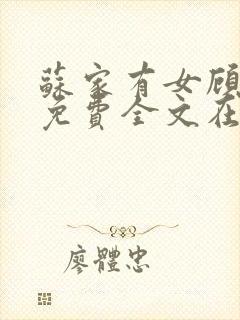 蘇家有女顾
免費全文在
廖體忠